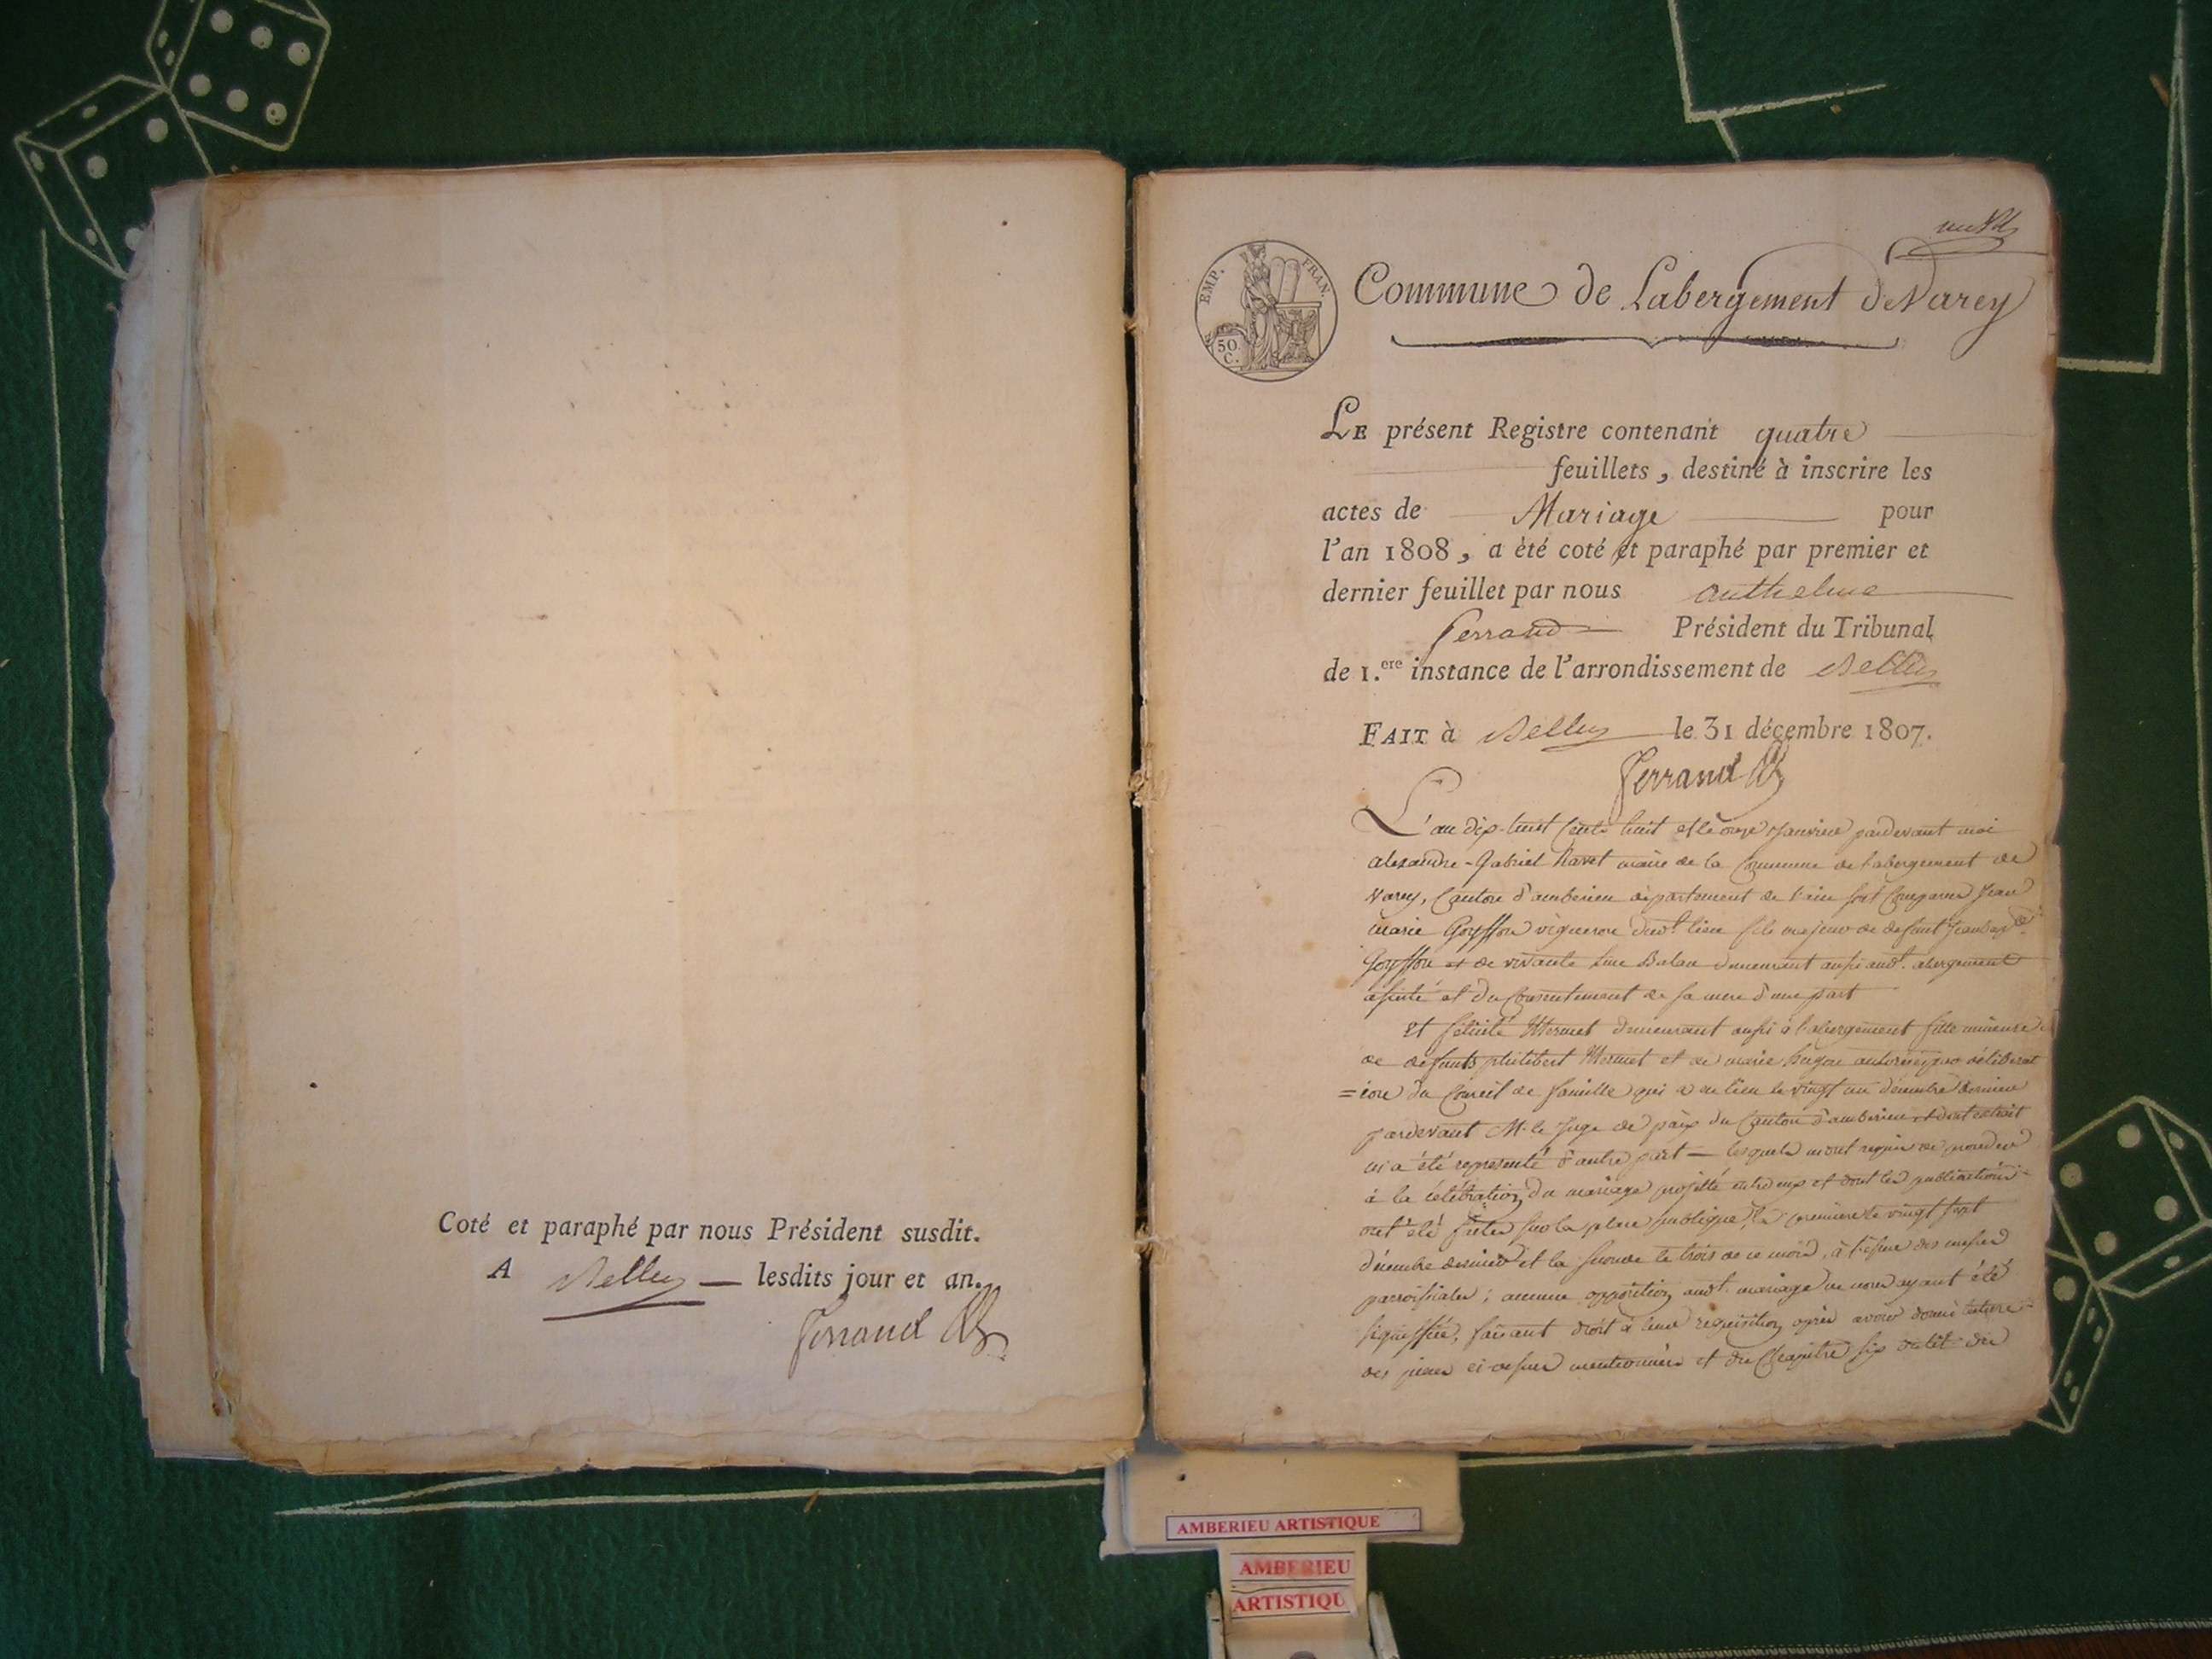 Coté et paraphé par nous Président susdit.
A Belley lesdits jour et an.
Ferrand
EMP. FRAN.
50
C.
Commune de Labergement de Varey
LE présent Registre contenant quatre
feuillets, destiné à inscrire les
actes de Mariage pour
l'an 1808, a été coté et paraphé par premier et
dernier feuillet par nous anthelme
ferrand Président du Tribunal
de 1.ere instance de l'arrondissement de Belley
FAIT à Belley le 31 décembre 1807.
Ferrand
L'an dix-huit cents huit et le onze janvier pardevant moi
alexandre-Gabriel Ravet maire de la Commune de Labergement de
Varey, Canton d'amberieu département de l'ain sont Comparus Jean
marie Goyffon vigneron dud.t lieu fils majeur de defunt
Goyffon et de vivante Balan demeurant aussi aud.t abergement
assisté et du Consentement de sa mere d'une part
Et felicité Mermet demeurant aussi à l'abergement fille mineure
de defunts philibert Mermet et de marie autorisée par déliberat
=ion du Conseil de famille qui a eu lieu le vingt un décembre dernier
pardevant M. le Juge de paix du Canton d'amberieu et dont extrait
m'a été representé d'autre part — lesquels m'ont requis de proceder
à la célébration du mariage projetté entre eux et dont les publications
ont été faites sur la place publique, la premiere le vingt sept
décembre dernier et la seconde le trois de ce mois, à l'issue des messes
paroissiales; aucune opposition aud.t mariage ne nous ayant été
signiffiée, faisant droit à leur requisition après avoir donné lecture
des pieces ci-dessus mentionnées et du Chapitre six du
AMBERIEU ARTISTIQUE
AMBERIEU
ARTISTIQU